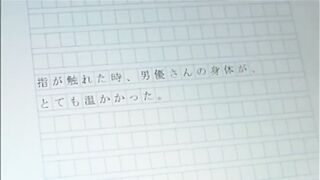 指が触れた時、男優さんの身体が、
とても温かかった。